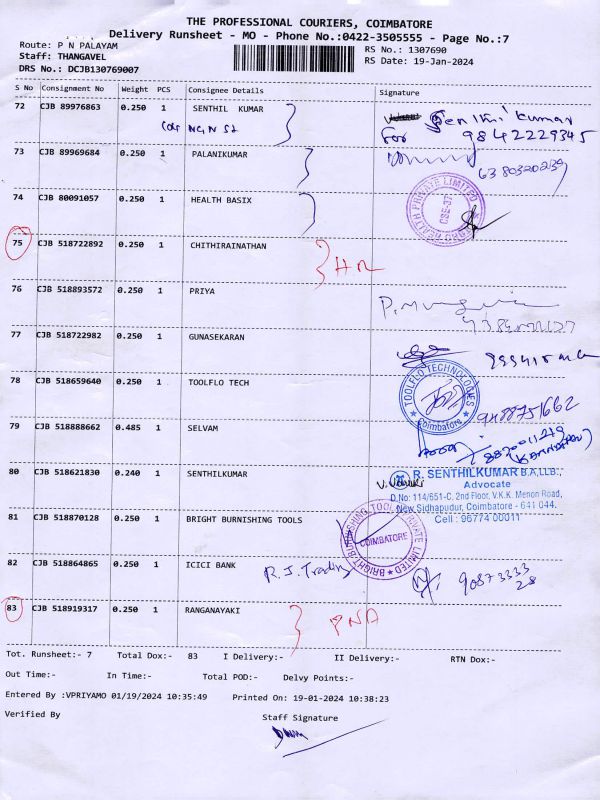 THE PROFESSIONAL COURIERS, COIMBATORE
Delivery Runsheet - MO - Phone No.:0422-3505555 - Page No.:7
Route: P N PALAYAM
Staff: THANGAVEL
DRS No.: DCJB130769007
RS No.: 1307690
RS Date: 19-Jan-2024
S No Consignment No Weight PCS Consignee Details Signature
72 CJB 89976863 0.250 1 SENTHIL KUMAR
Senthil kumar
for 9842229345
73 CJB 89969684 0.250 1 PALANIKUMAR
6380320239
74 CJB 80091057 0.250 1 HEALTH BASIX
HEALTH PRIVATE LIMITED
CBE-37
75 CJB 518722892 0.250 1 CHITHIRAINATHAN
76 CJB 518893572 0.250 1 PRIYA
77 CJB 518722982 0.250 1 GUNASEKARAN
78 CJB 518659640 0.250 1 TOOLFLO TECH
TOOLFLO TECHNOLOGIES
Coimbatore
9488751662
79 CJB 518888662 0.485 1 SELVAM
80 CJB 518621830 0.240 1 SENTHILKUMAR
R. SENTHILKUMAR B.A,LLB.,
Advocate
D.No: 114/651-C, 2nd Floor, V.K.K. Menon Road,
New Sidhapudur, Coimbatore - 641 044.
Cell : 96774 00011
81 CJB 518870128 0.250 1 BRIGHT BURNISHING TOOLS
BRIGHT BURNISHING TOOLS PRIVATE LIMITED
COIMBATORE
82 CJB 518864865 0.250 1 ICICI BANK
R.J. Trading
90873333
28
83 CJB 518919317 0.250 1 RANGANAYAKI
PNA
Tot. Runsheet:- 7 Total Dox:- 83 I Delivery:- II Delivery:- RTN Dox:-
Out Time:- In Time:- Total POD:- Delvy Points:-
Entered By :VPRIYAMO 01/19/2024 10:35:49 Printed On: 19-01-2024 10:38:23
Verified By Staff Signature